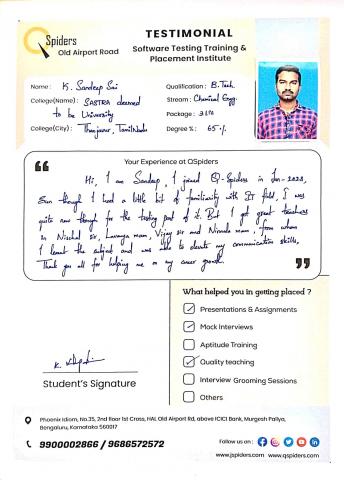 TESTIMONIAL
QSpiders
Old Airport Road
Software Testing Training &
Placement Institute
Name : K. Sandeep Sai
Qualification : B.Tech
College(Name) : SASTRA deemed
to be University
Stream : Chemical Engg.
Package : 3 LPA
College(City) : Thanjavur, TamilNadu
Degree % : 65%
Your Experience at QSpiders
Hi, I am Sandeep, I joined Q-Spiders in Jan-2023,
Even though I had a little bit of familiarity with IT field, I was
quite new though for the testing part of it. But I got great teachers
in Nischal sir, Lavanya mam, Vijay sir and Nirmala mam, from whom
I learnt the subject and was able to elevate my communication skills,
Thank you all for helping me on my career growth.
What helped you in getting placed ?
Presentations & Assignments
Mock Interviews
Aptitude Training
Quality teaching
Interview Grooming Sessions
Others
Student's Signature
Phoenix Idiom, No.35, 2nd floor 1st Cross, HAL Old Airport Rd, above ICICI Bank, Murgesh Pallya,
Bengaluru, Karnataka 560017
9900002866 / 9686572572
Follow us on :
www.jspiders.com www.qspiders.com